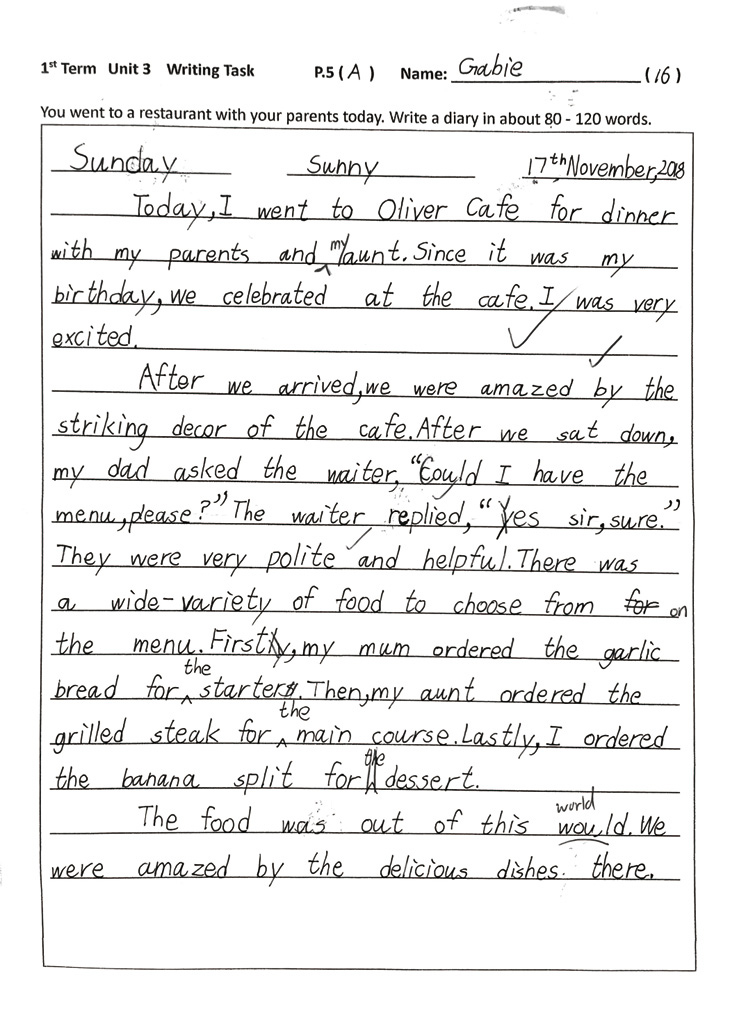 1st Term Unit 3 Writing Task P.5 ( A ) Name: Gabie (16)
You went to a restaurant with your parents today. Write a diary in about 80 - 120 words.
Sunday Sunny 17th November, 2018
Today, I went to Oliver Cafe for dinner
with my parents and my aunt. Since it was my
birthday, we celebrated at the cafe. I was very
excited.
After we arrived, we were amazed by the
striking decor of the cafe. After we sat down,
my dad asked the waiter, "Could I have the
menu, please?" The waiter replied, "Yes sir, sure."
They were very polite and helpful. There was
a wide-variety of food to choose from for on
the menu. Firstly, my mum ordered the garlic
bread for the starters. Then, my aunt ordered the
grilled steak for the main course. Lastly, I ordered
the banana split for the dessert.
world
The food was out of this would. We
were amazed by the delicious dishes. there.